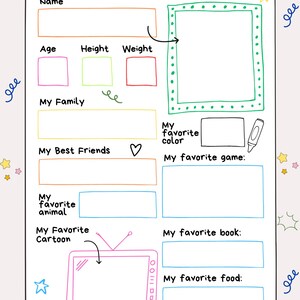 Name
Age Height Weight
My Family
My
favorite
color
My Best Friends
My favorite game:
My
favorite
animal
My Favorite
Cartoon
My favorite book:
My favorite food: